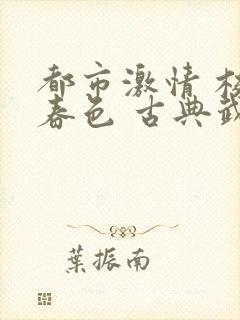 都市激情 校
春色 古典武
葉振南